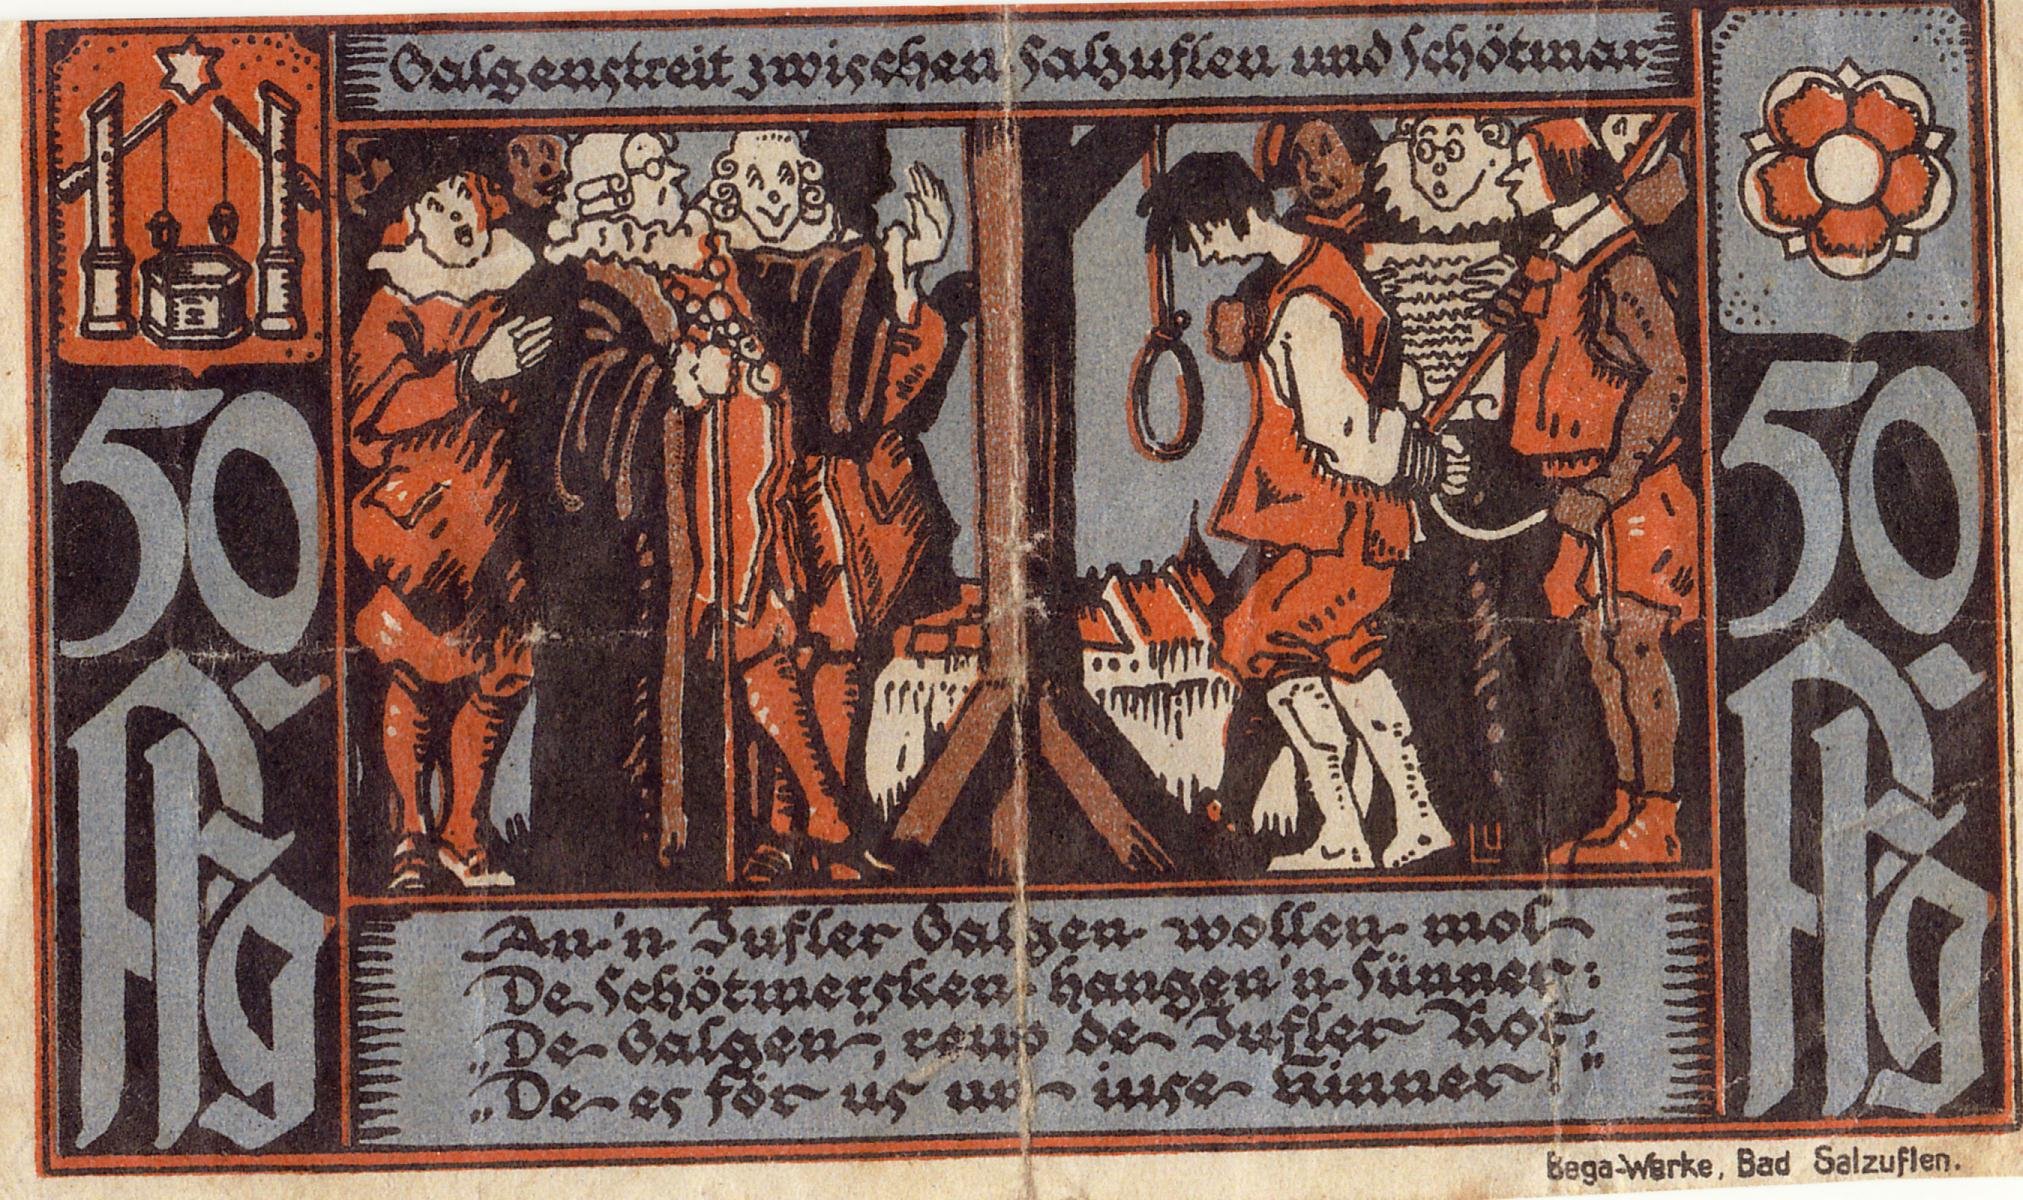 Galgenstreit zwischen Salzuflen und Schötmar
50
Pfg
50
Pfg
An'n Zufler Galgen wollen mol
De Schötmersken hangen'n Sünner:
„De Galgen“, reup de Zufler Rot;
„De es för us un iuse Kinner“
LU
Bega-Werke, Bad Salzuflen.